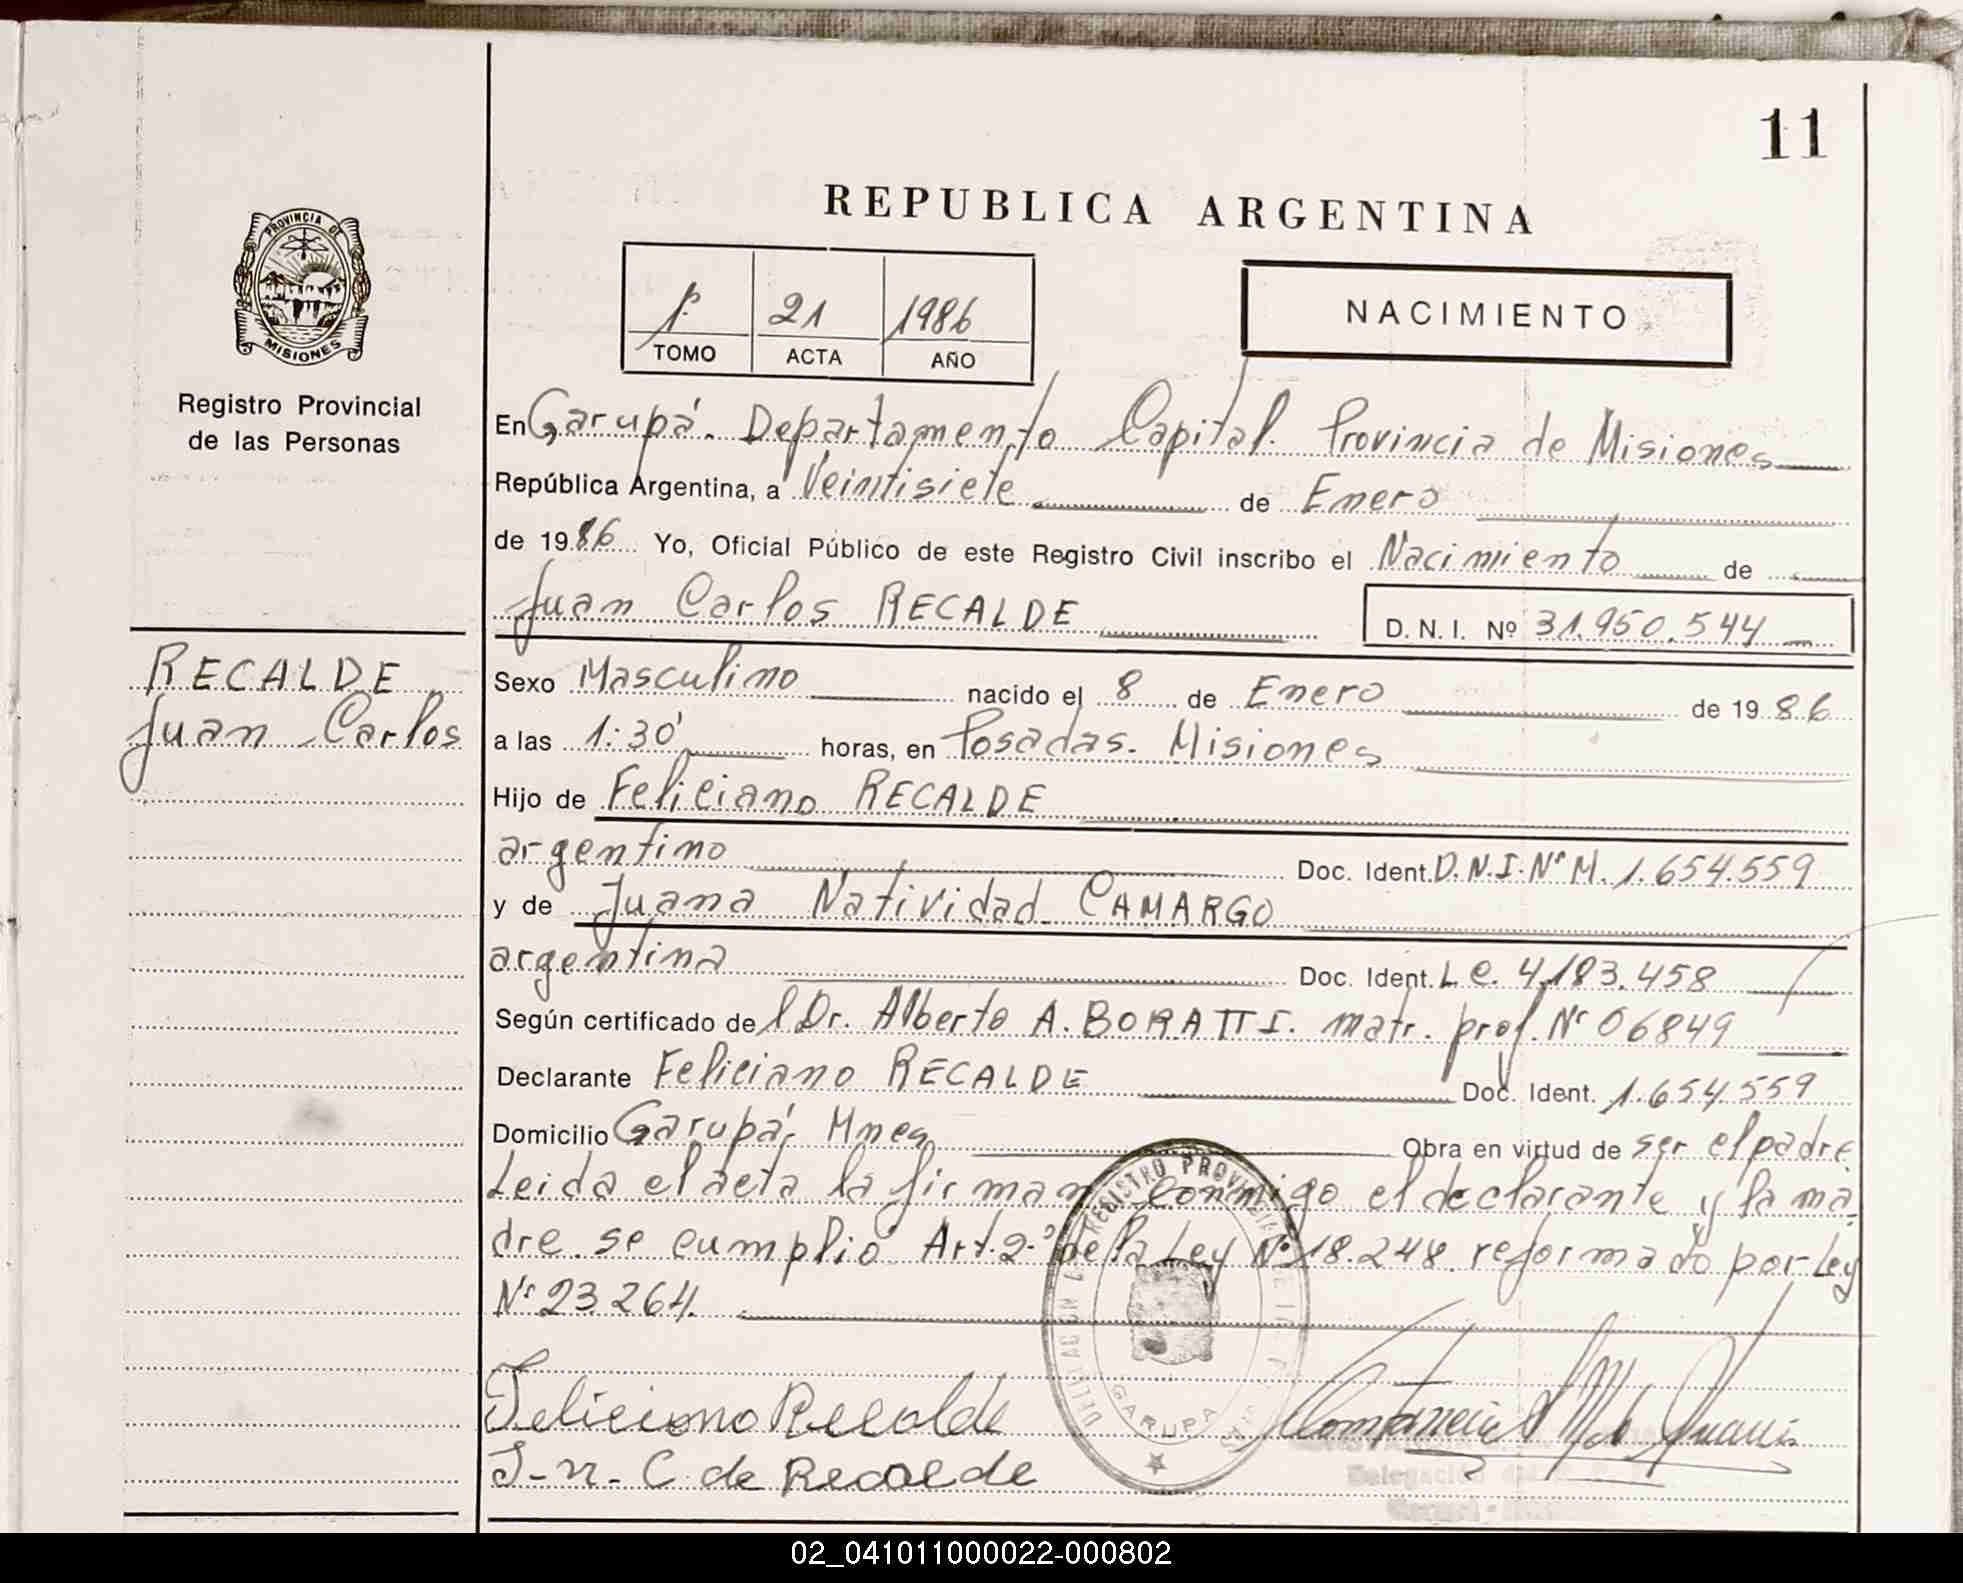 11
REPUBLICA ARGENTINA
PROVINCIA DE
MISIONES
Registro Provincial
de las Personas
1º 21 1986
TOMO ACTA AÑO
NACIMIENTO
En Garupá. Departamento Capital. Provincia de Misiones
República Argentina, a Veintisiete de Enero
de 1986 Yo, Oficial Público de este Registro Civil inscribo el Nacimiento de
Juan Carlos RECALDE D. N. I. Nº 31.950.544
RECALDE
Juan Carlos
Sexo Masculino nacido el 8 de Enero de 1986
a las 1:30' horas, en Posadas. Misiones
Hijo de Feliciano RECALDE
argentino Doc. Ident. D.N.I. Nº M. 1.654.559
y de Juana Natividad CAMARGO
argentina Doc. Ident. L.C. 4.183.458
Según certificado del Dr. Alberto A. BORATTI. matr. prof. Nº 06849
Declarante Feliciano RECALDE Doc. Ident. 1.654.559
Domicilio Garupá, Mnes Obra en virtud de ser el padre
Leida el acta la firman conmigo el declarante y la ma-
dre. se cumplió Art. 2º de la Ley Nº 18.248. reformado por Ley
Nº 23.264.
REGISTRO PROVINCIAL
GARUPA
Feliciano Recalde
J-N-C de Recalde
Delegación
02_041011000022-000802